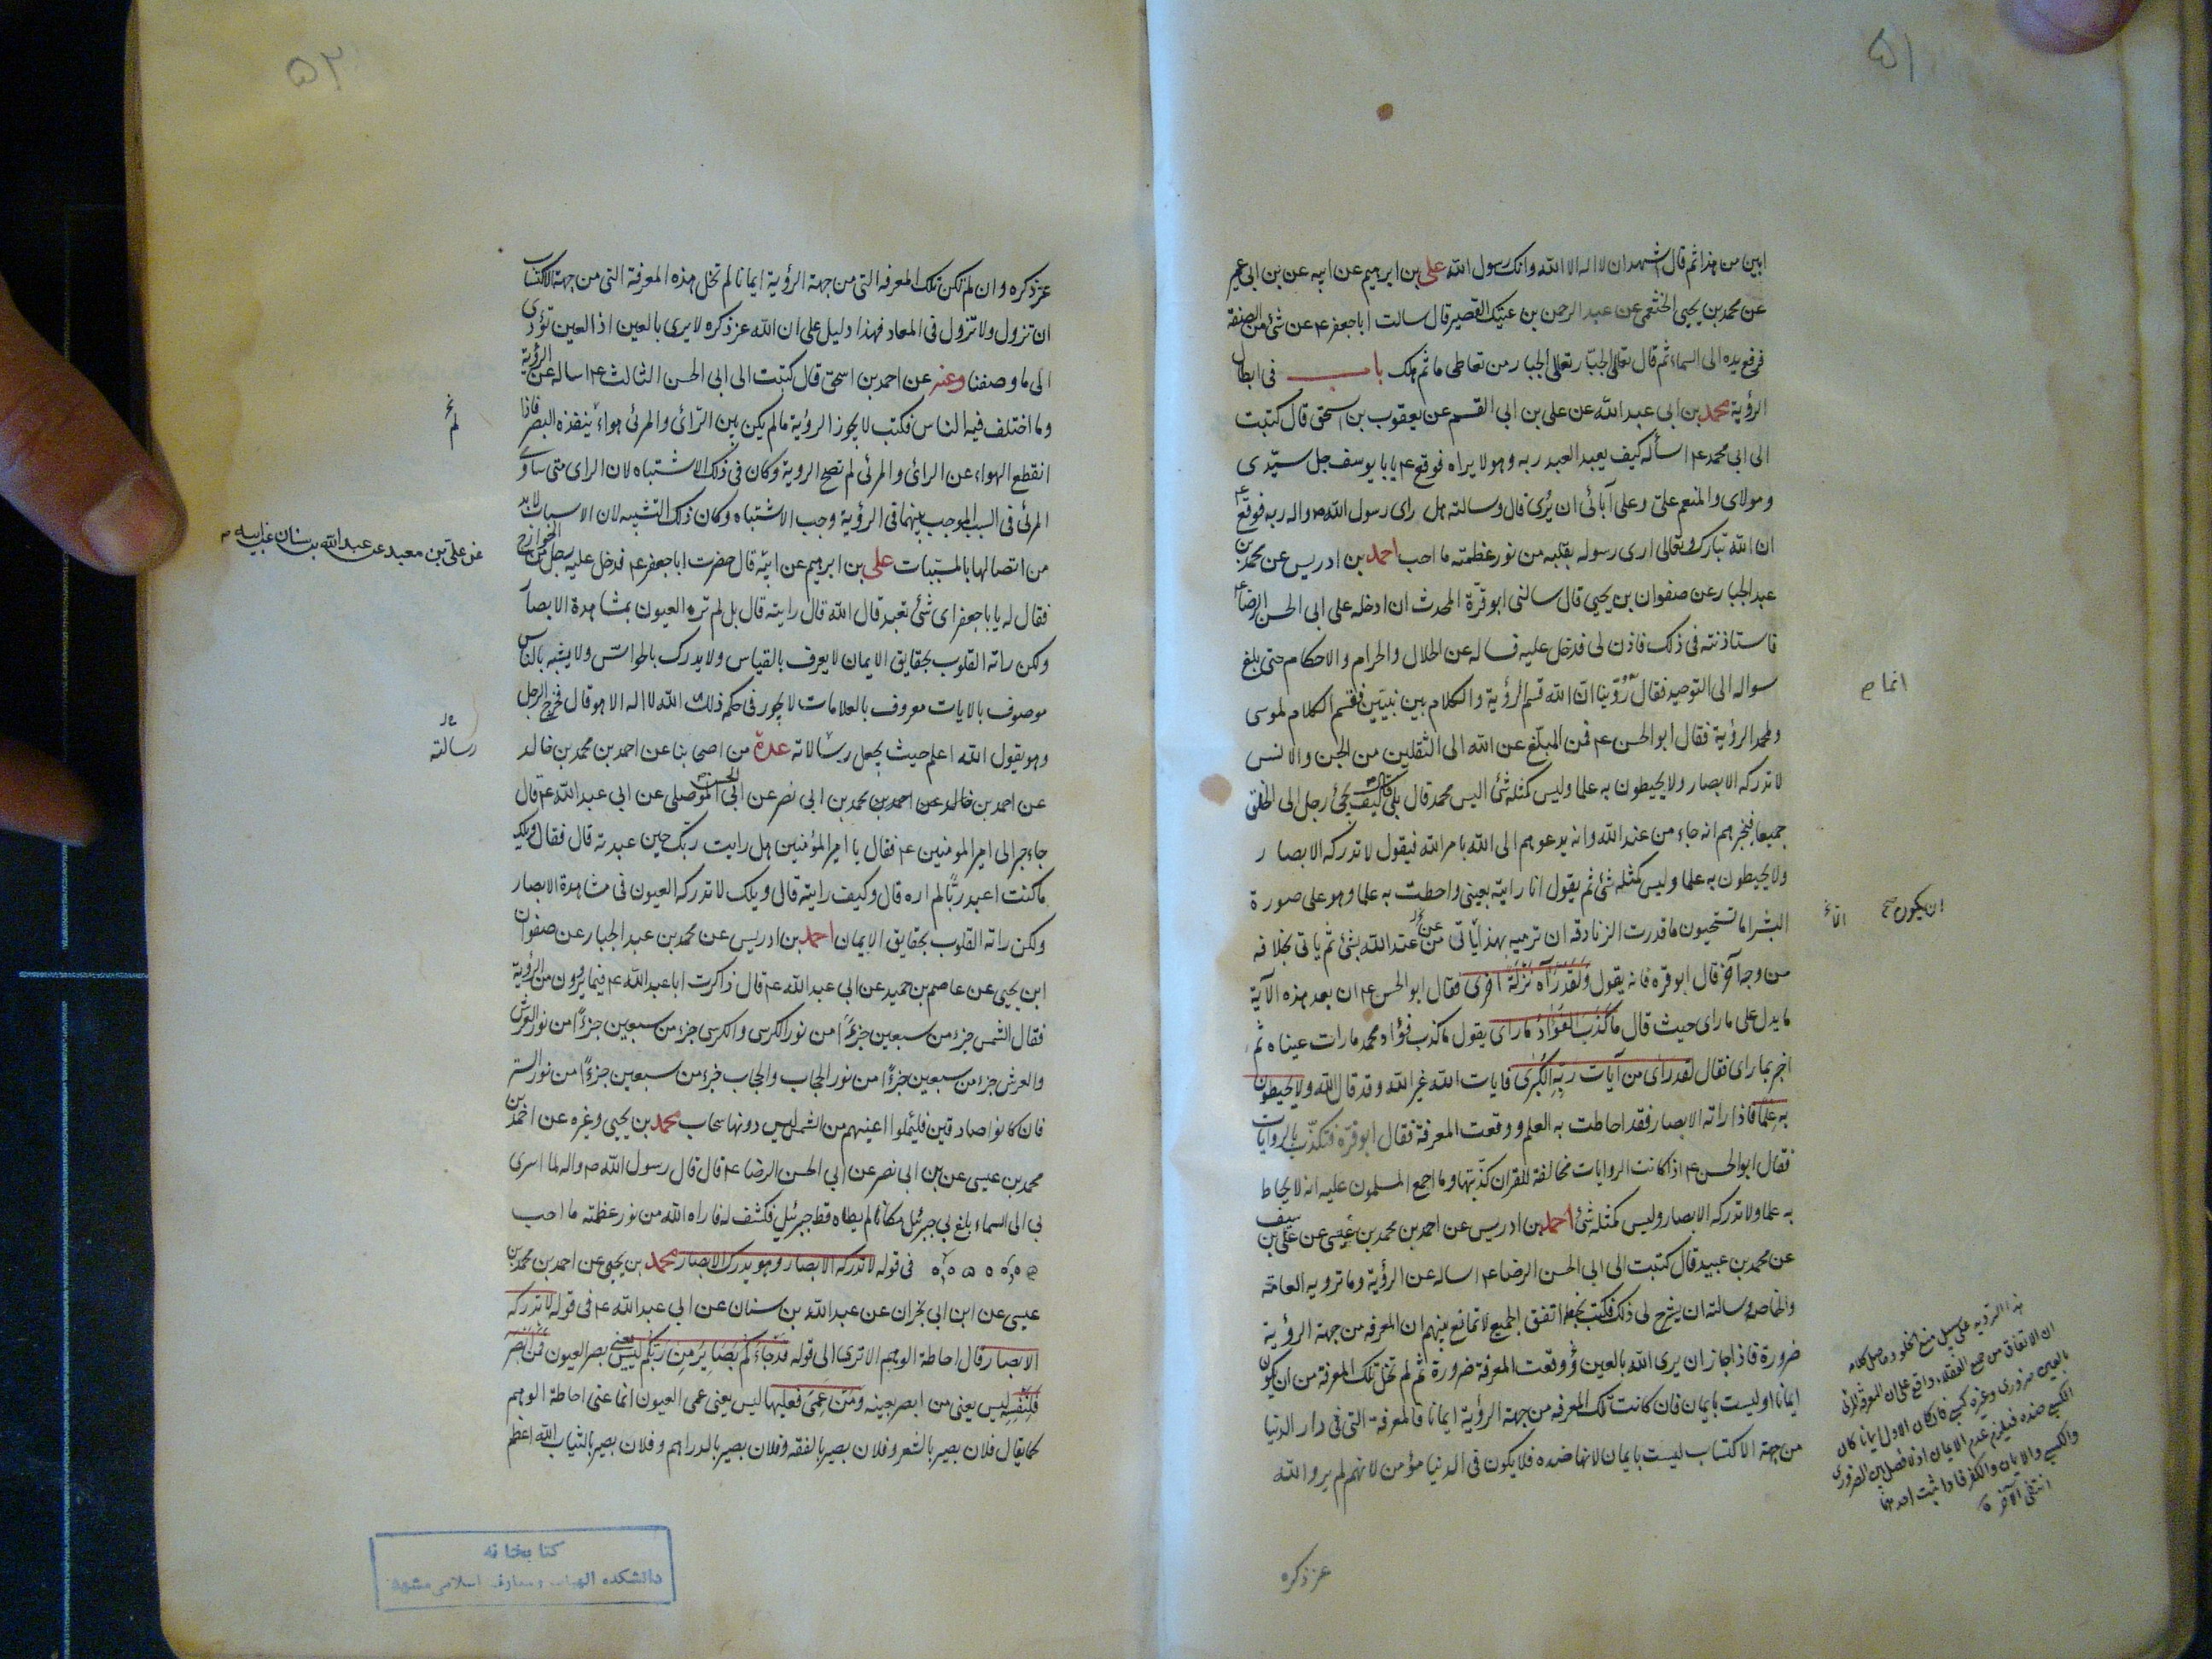 ۵۱
ابين من هذا ثم قال اشهد ان لا اله الا الله وانك رسول الله علي بن ابرهيم عن ابيه عن بن ابي عمير
عن محمد بن يحيى الخثعمى عن عبد الرحمن بن عتيك القصير قال سالت ابا جعفر ع عن شئ من الصفة
فرفع يده الى السماء ثم قال تعالى الجبّار تعالى الجبار من تعاطى ما ثم هلك باب فى ابطال
الرؤية محمد بن ابى عبد الله عن على بن ابى القسم عن يعقوب بن اسحق قال كتبت
الى ابى محمد ع اسأله كيف يعبد العبد ربه وهو لا يراه فوقع ع يا با يوسف جل سيّدى
ومولاى والمنعم علىّ وعلى آبائى ان يُرى قال وسالته هل راى رسول الله ص واله ربه فوقع ع
ان الله تبارك وتعالى ارى رسوله بقلبه من نور عظمته ما احب احمد بن ادريس عن محمد بن
عبد الجبار عن صفوان بن يحيى قال سالنى ابو قرة المحدث ان ادخله على ابى الحسن الرضا ع
فاستاذنته فى ذلك فاذن لى فدخل عليه فساله عن الحلال والحرام والاحكام حتى بلغ
سواله الى التوحيد فقال رُوّينا انّ الله قسم الرؤية والكلام بين نبيّين فقسم الكلام لموسى
ولمحمد الرؤية فقال ابو الحسن ع فمن المبلّغ عن الله الى الثقلين من الجن والانس
لا تدركه الابصار ولا يحيطون به علما وليس كمثله شئ اليس محمد قال بلى قال كيف يجئ رجل الى الخلق
جميعا فيخبرهم انه جاء من عند الله وانه يدعوهم الى الله بامر الله فيقول لا تدركه الابصار
ولا يحيطون به علما وليس كمثله شئ ثم يقول انا رايته بعينى واحطت به علما وهو على صورة
البشر اما تستحيون ما قدرت الزنادقة ان ترميه بهذا يأتى من عند الله بشئ ثم ياتى بخلافه
من وجه آخر قال ابو قره فانه يقول ولقد رآه نزلة اخرى فقال ابو الحسن ع ان بعد هذه الآية
ما يدل على ما راى حيث قال ما كذب الفؤاد ما راى يقول ما كذب فؤاد محمد ما رات عيناه ثم
اخبر بما راى فقال لقد راى من آيات ربه الكبرى فايات الله غير الله وقد قال الله ولا يحيطون
به علما فاذا راته الابصار فقد احاطت به العلم ووقعت المعرفة فقال ابو قرّة فتكذّب بالروايات
فقال ابو الحسن ع اذا كانت الروايات مخالفة للقران كذّبتها وما اجمع المسلمون عليه انه لا يحاط
به علما ولا تدركه الابصار وليس كمثله شئ احمد بن ادريس عن احمد بن محمد بن عيسى عن على بن سيف
عن محمد بن عبيد قال كتبت الى ابى الحسن الرضا ع اساله عن الرؤية وما ترويه العامة
والخاصة وسالته ان يشرح لى ذلك فكتب بخطه اتفق الجميع لا تمانع بينهم ان المعرفه من جهة الرؤية
ضرورة فاذا جاز ان يرى الله بالعين وقعت المعرفة ضرورة ثم لم تخل تلك المعرفة من ان يكون
ايمانا او ليست بايمان فان كانت تلك المعرفه من جهة الرؤية ايمانا فالمعرفة التى فى دار الدنيا
من جهة الاكتساب ليست بايمان لانها ضده فلا يكون فى الدنيا مؤمن لانهم لم يروا الله
عز ذكره
ان يكون صح
هذا الترديد على سبيل منع الخلو وحاصل كلامه
ان الاتفاق من جميع العقلاء واقع على ان المعرفة
بالعين ضرورى وغيره كسبى فان كان الاول ايمانا كان
الكسبى ضده فيلزم عدم الايمان
انتفى الاخر
۵۲
عز ذكره وان لم تكن تلك المعرفه التى من جهة الرؤية ايمانا لم تخل هذه المعرفة التى من جهة الاكتساب
ان تزول ولا تزول فى المعاد فهذا دليل على ان الله عز ذكره لا يرى بالعين اذ العين تؤدى
الى ما وصفنا وعنه عن احمد بن اسحق قال كتبت الى ابى الحسن الثالث ع اساله عن الرؤية
وما اختلف فيه الناس فكتب لا يجوز الرؤية ما لم يكن بين الرّائى والمرئى هواء ينفذه البصر فاذا
انقطع الهواء عن الرائى والمرئى لم تصح الروية وكان فى ذلك الاشتباه لان الراى متى ساوى
المرئى فى السبب الموجب بينهما فى الرؤية وجب الاشتباه وكان ذلك التشبيه لان الاسباب لا بد
من اتصالها بالمسببات على بن ابرهيم عن ابيه قال حضرت ابا جعفر ع فدخل عليه رجل من الخوارج
فقال له يا با جعفر اى شئ تعبد قال الله قال رايته قال بل لم تره العيون بمشاهدة الابصار
ولكن راته القلوب بحقايق الايمان لا يعرف بالقياس ولا يدرك بالحواسّ ولا يشبه بالناس
موصوف بالايات معروف بالعلامات لا يجور فى حكمه ذلك الله لا اله الا هو قال فخرج الرجل
وهو يقول الله اعلم حيث يجعل رسالاته عدة من اصحابنا عن احمد بن محمد بن خالد
عن احمد بن محمد بن ابى نصر عن ابى الحسن الموصلى عن ابى عبد الله ع قال
جاء حبر الى امير المومنين ع فقال يا امير المؤمنين هل رايت ربّك حين عبدته قال فقال ويلك
ما كنت اعبد ربًّا لم اره قال وكيف رايته قال ويلك لا تدركه العيون فى مشاهدة الابصار
ولكن راته القلوب بحقايق الايمان احمد بن ادريس عن محمد بن عبد الجبار عن صفوان
ابن يحيى عن عاصم بن حميد عن ابى عبد الله ع قال ذاكرت ابا عبد الله ع فيما يروون من الرؤية
فقال الشمس جزء من سبعين جزءًا من نور الكرسى والكرسى جزء من سبعين جزءًا من نور العرش
والعرش جزء من سبعين جزءًا من نور الحجاب والحجاب جزء من سبعين جزءًا من نور الستر
فان كانوا صادقين فليملوا اعينهم من الشمس ليس دونها سحاب محمد بن يحيى وغيره عن احمد بن
محمد بن عيسى عن بن ابى نصر عن ابى الحسن الرضا ع قال قال رسول الله ص واله لما اسرى
بى الى السماء بلغ بى جبرئيل مكانا لم يطاه قط جبرئيل فكشف له فاراه الله من نور عظمته ما احب
فى قوله لا تدركه الابصار وهو يدرك الابصار محمد بن يحيى عن احمد بن محمد بن
عيسى عن ابن ابى نجران عن عبد الله بن سنان عن ابى عبد الله ع فى قوله لا تدركه
الابصار قال احاطة الوهم الا ترى الى قوله قد جاءكم بصاير من ربكم ليس يعنى بصر العيون فمن ابصر
فلنفسه ليس يعنى من ابصر بعينه ومن عمى فعليها ليس يعنى عمى العيون انما عنى احاطة الوهم
كما يقال فلان بصير بالشعر وفلان بصير بالفقه وفلان بصير بالدراهم وفلان بصير بالثياب الله اعظم
عن على بن معبد عن عبد الله بن سنان عن ابيه
رسالته
كتابخانه
دانشكده الهيات و معارف اسلامى مشهد